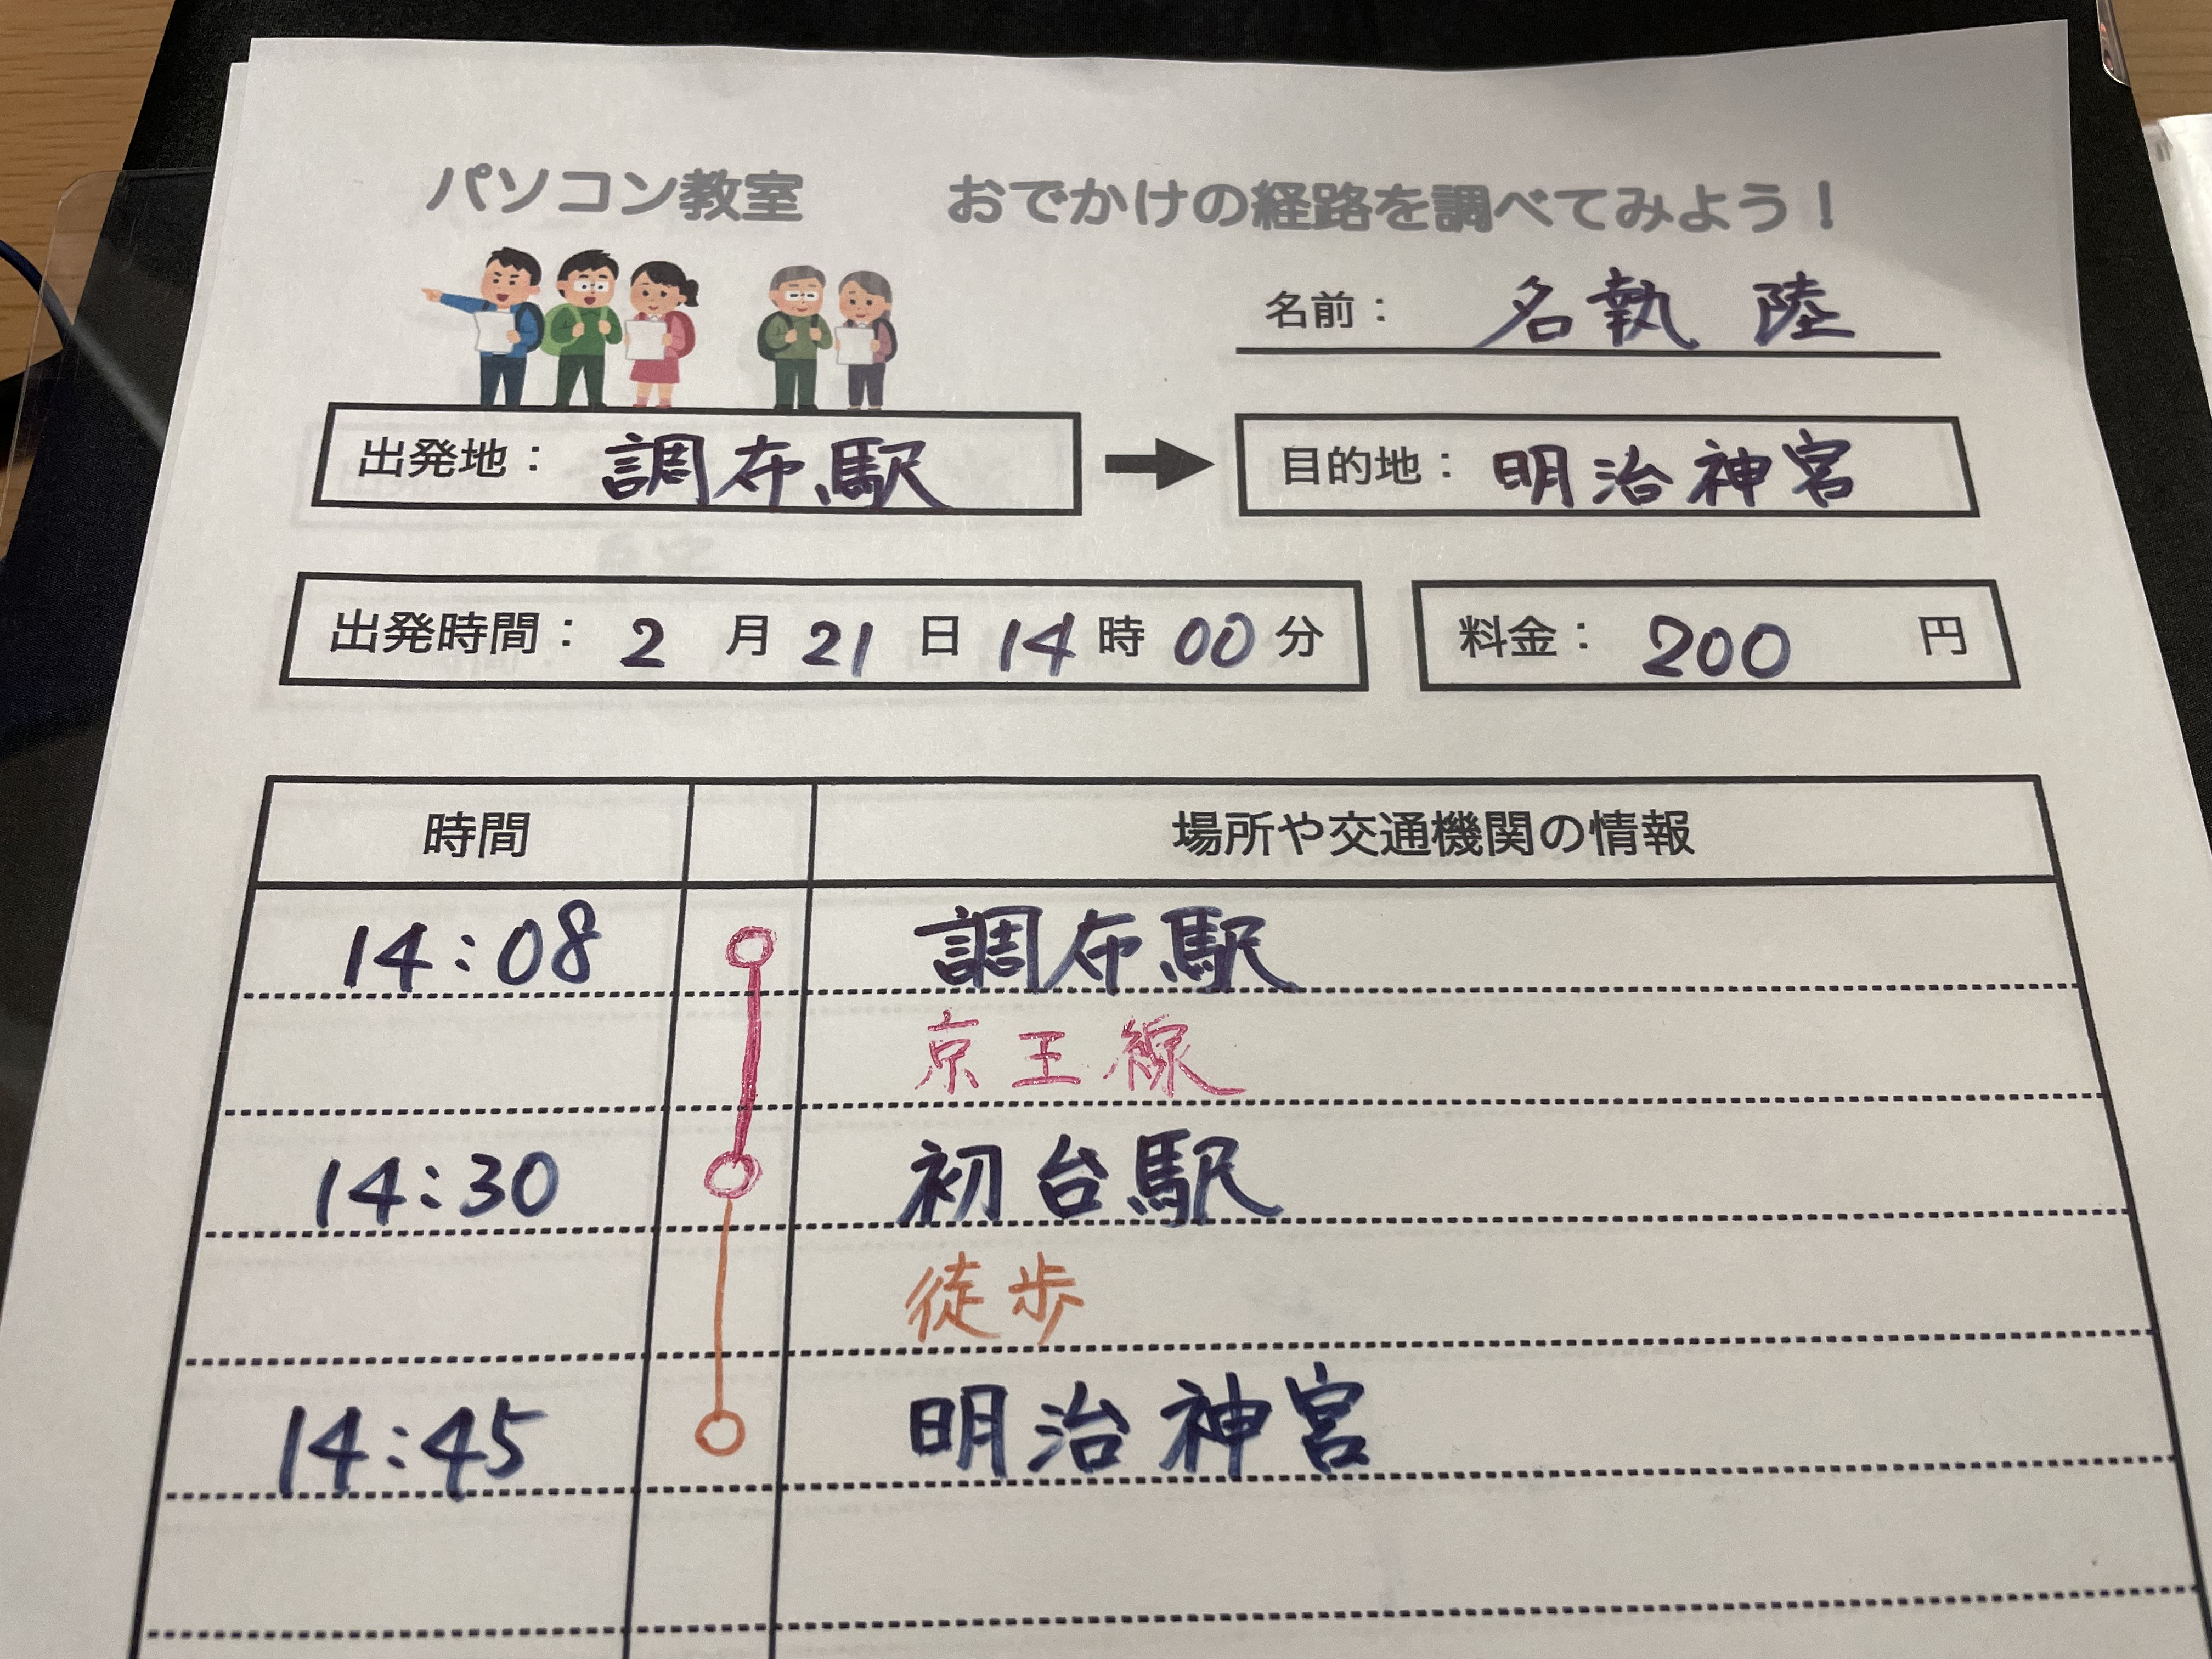 パソコン教室　おでかけの経路を調べてみよう！
名前： 名執 陸
出発地： 調布駅 → 目的地： 明治神宮
出発時間： 2 月 21 日 14 時 00 分 料金： 200 円
時間 場所や交通機関の情報
14:08 調布駅
京王線
14:30 初台駅
徒歩
14:45 明治神宮